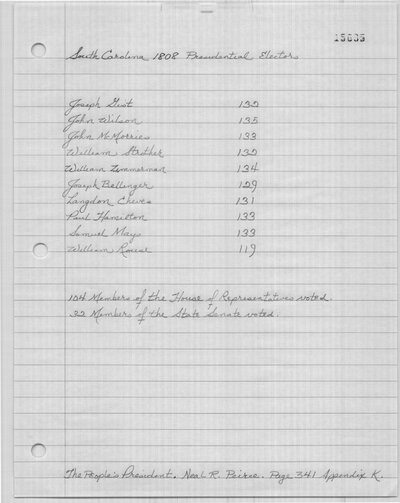 15635
South Carolina 1808 Presidential Electors
Joseph Gist 132
John Wilson 135
John McMorries 133
William Strother 132
William Zimmerman 134
Joseph Bellinger 129
Langdon Cheves 131
Paul Hamilton 133
Samuel Mays 133
William Rouse 119
104 Members of the House of Representatives voted.
32 Members of the State Senate voted.
The People's President. Neal R. Peirce. Page 341 Appendix K.